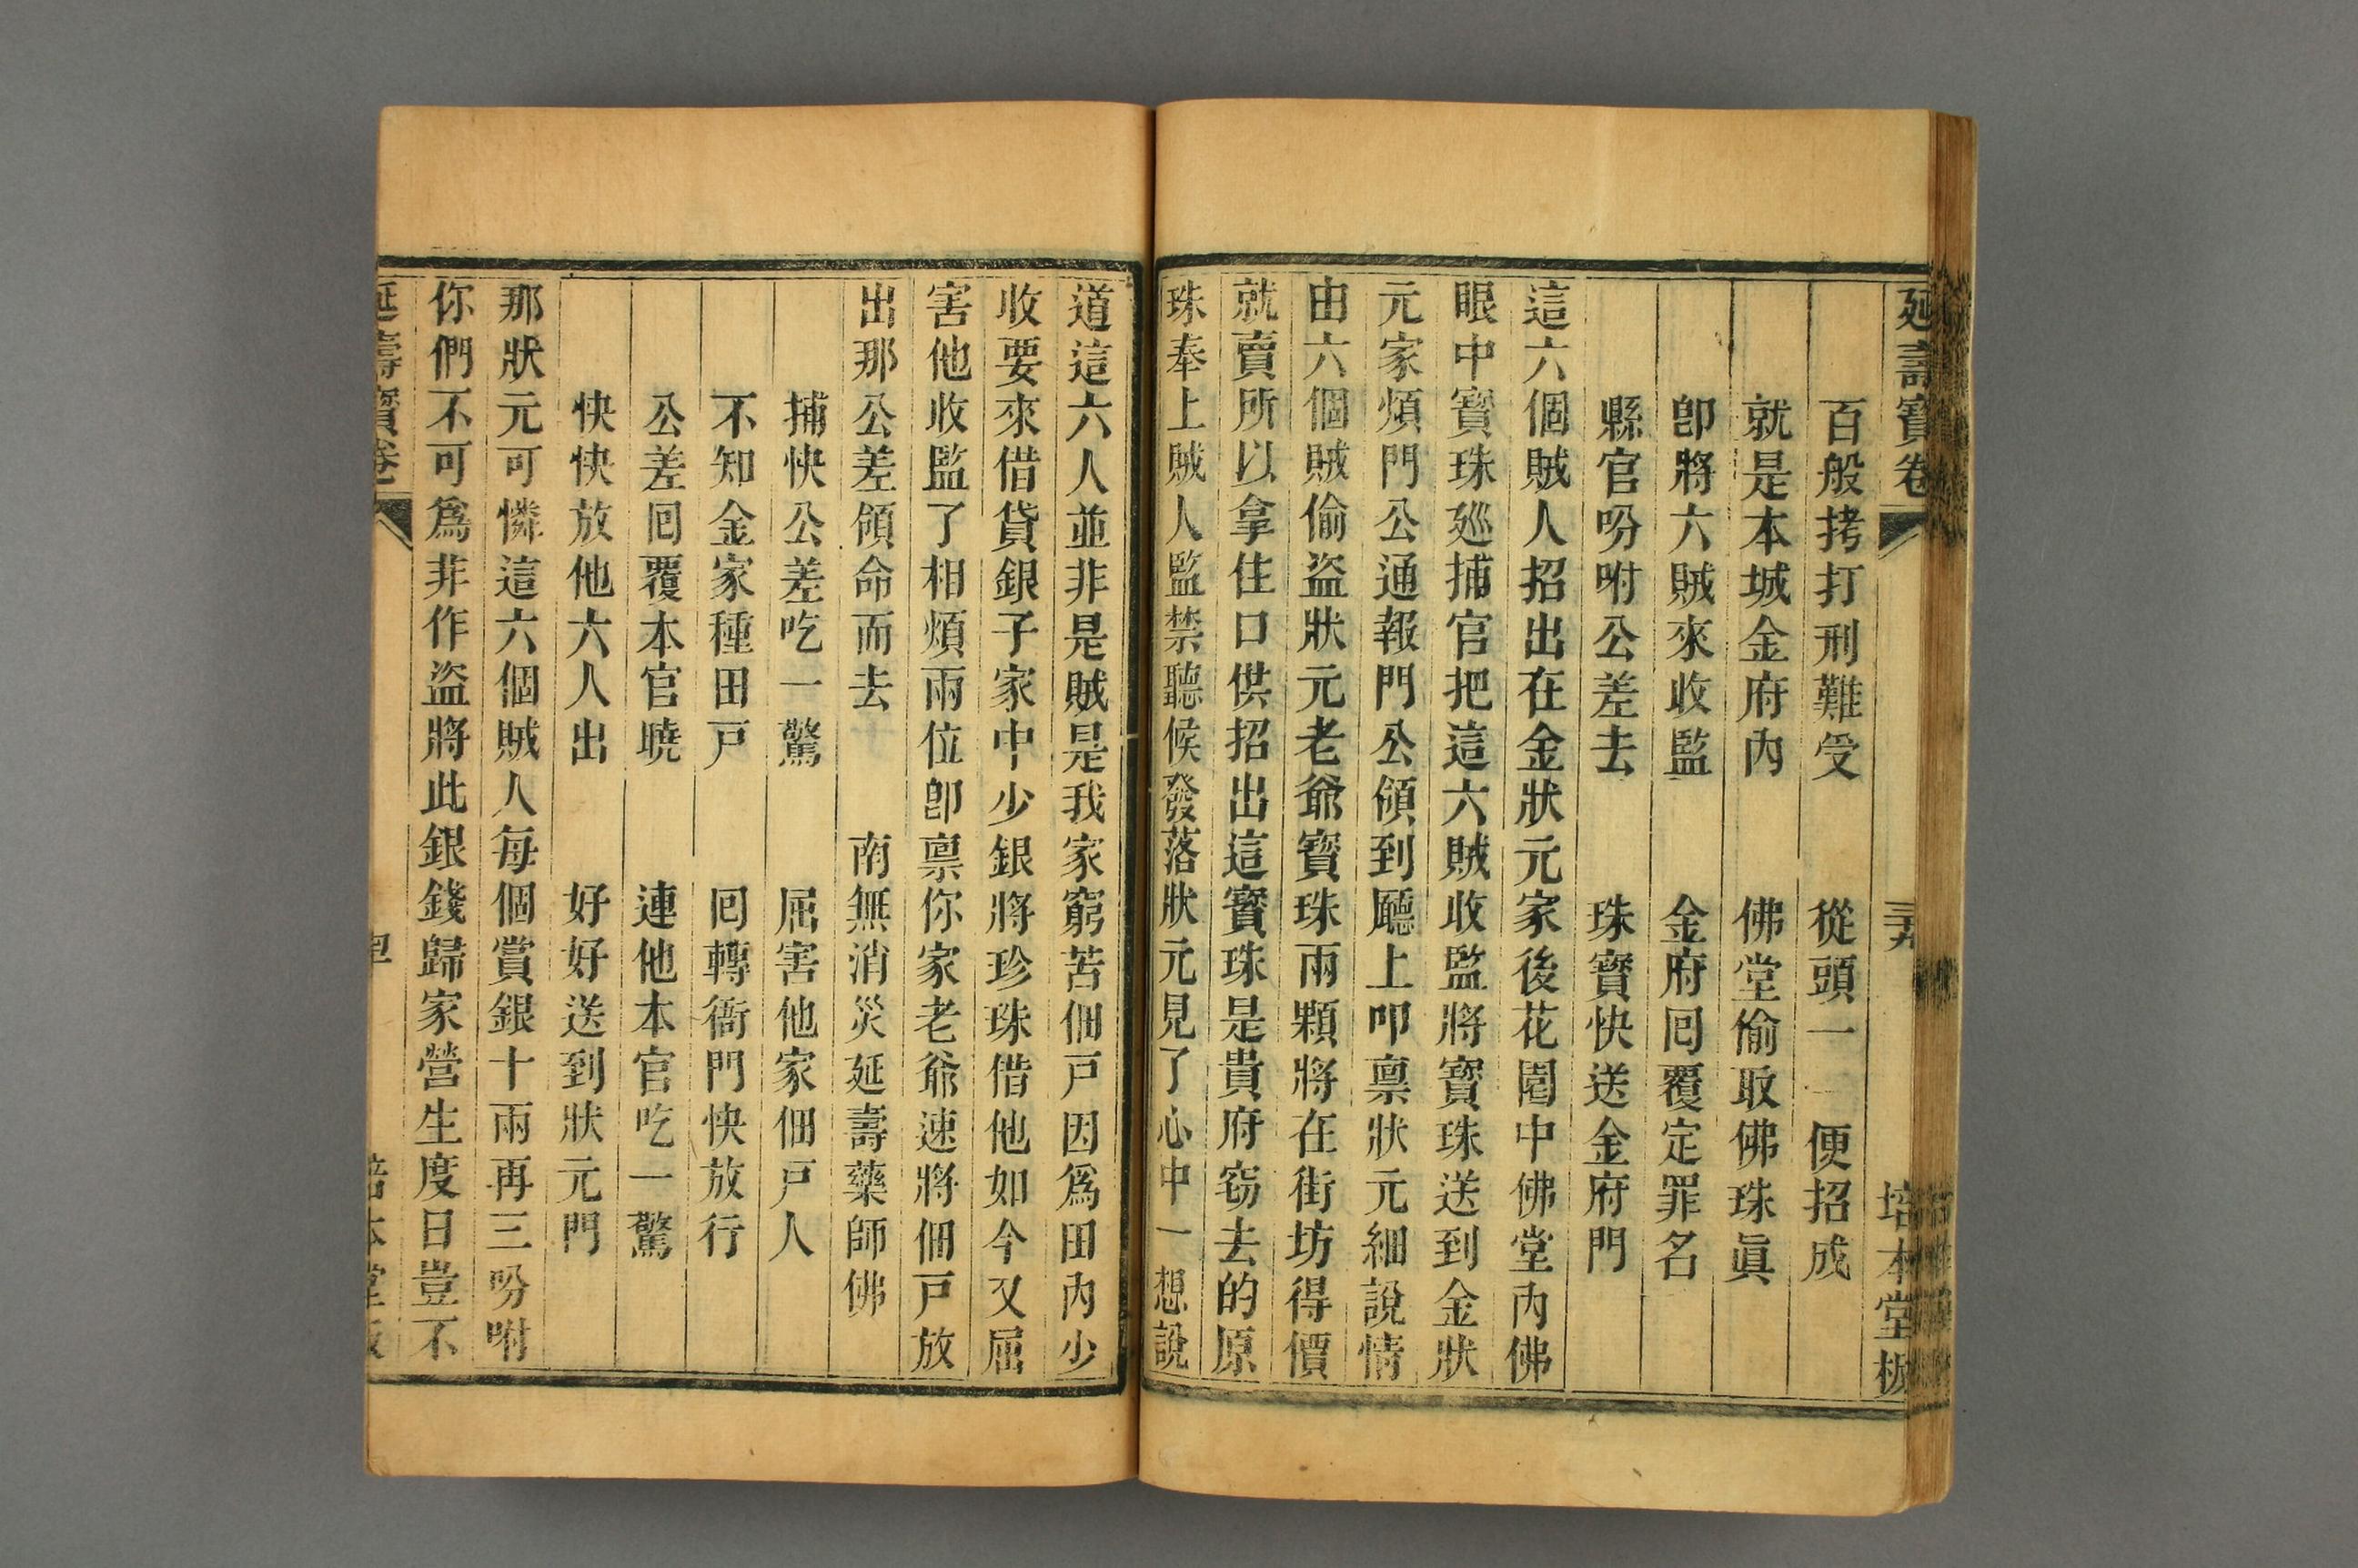 延壽寶卷 三十九 培本堂板
百般拷打刑難受 從頭一一便招成
就是本城金府內 佛堂偷取佛珠眞
卽將六賊來收監 金府囘覆定罪名
縣官吩咐公差去 珠寶快送金府門
這六個賊人招出在金狀元家後花園中佛堂內佛
眼中寶珠廵捕官把這六賊收監將寶珠送到金狀
元家煩門公通報門公領到廳上叩禀狀元細說情
由六個賊偷盜狀元老爺寶珠兩顆將在街坊得價
就賣所以拿住口供招出這寶珠是貴府窃去的原
珠奉上賊人監禁聽候發落狀元見了心中一想說
道這六人並非是賊是我家窮苦佃戸因爲田內少
收要來借貸銀子家中少銀將珍珠借他如今又屈
害他收監了相煩兩位卽禀你家老爺速將佃戸放
出那公差領命而去 南無消災延壽藥師佛
捕快公差吃一驚 屈害他家佃戸人
不知金家種田戸 囘轉衙門快放行
公差囘覆本官曉 連他本官吃一驚
快快放他六人出 好好送到狀元門
那狀元可憐這六個賊人每個賞銀十兩再三吩咐
你們不可爲非作盜將此銀錢歸家營生度日豈不
延壽寶卷 培本堂板